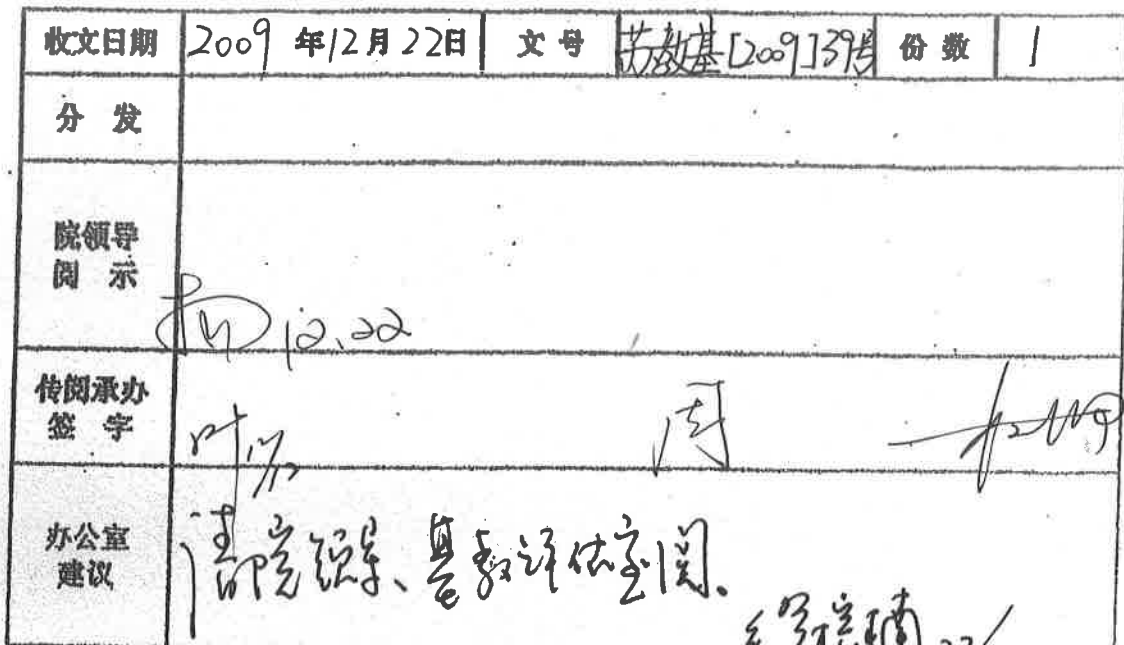 收文日期 2009年12月22日 文号 苏教基[2009]39号 份数 1
分发
院领导
阅示
12.22
传阅承办
签字
叶 周
办公室
建议
请院领导、基教评估室阅。